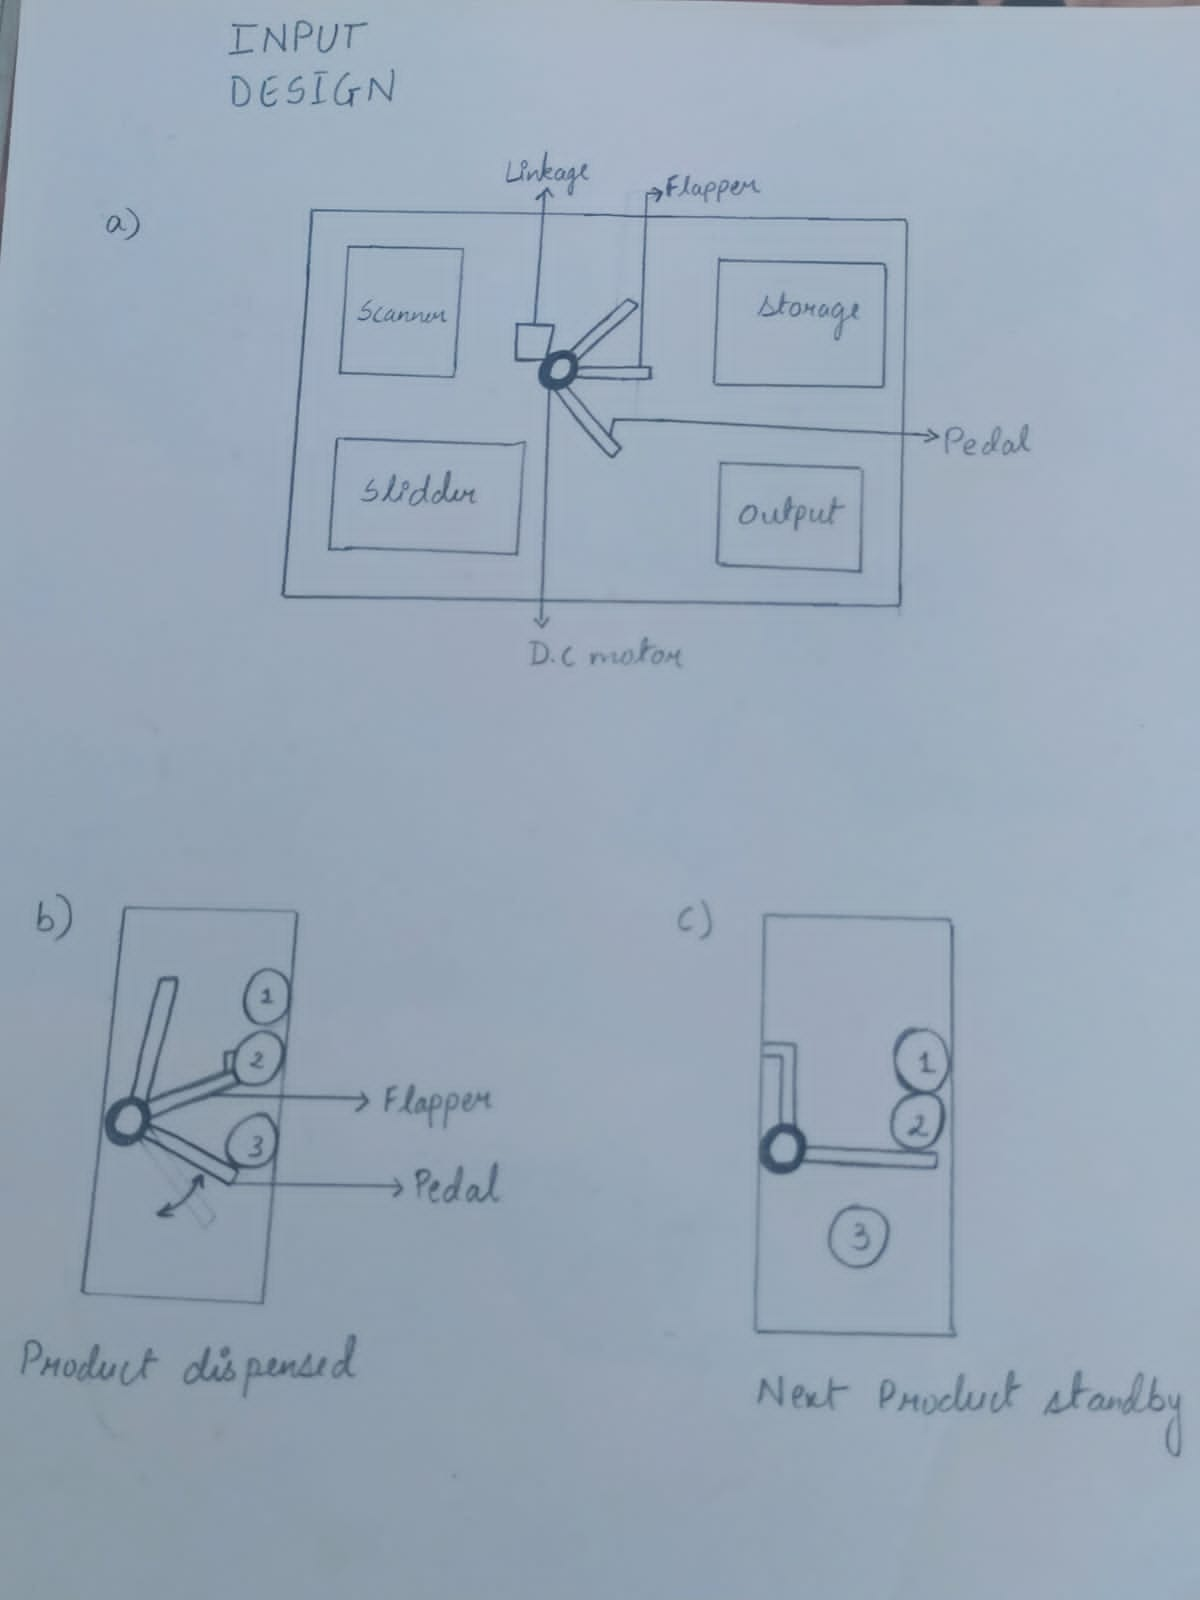 INPUT
DESIGN
a)
Linkage
Flapper
Scanner
Storage
Pedal
Slidder
Output
D.C motor
b)
1
2
Flapper
3
Pedal
Product dispensed
c)
1
2
3
Next Product standby